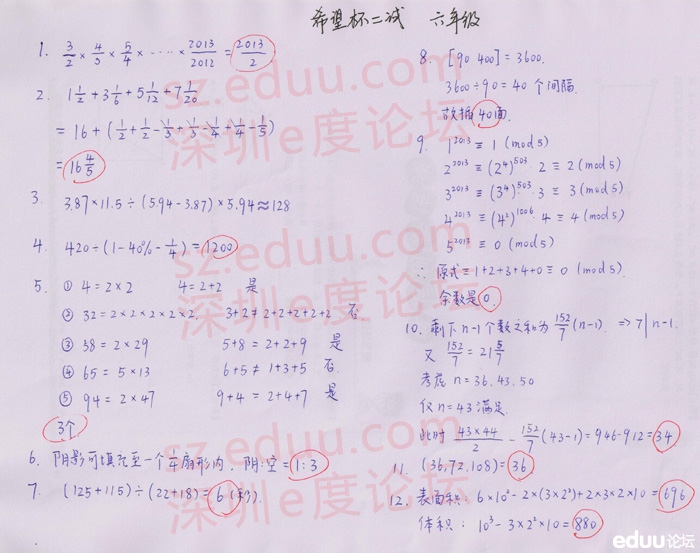 希望杯二试 六年级
1. 3/2 × 4/3 × 5/4 × ····· × 2013/2012 = 2013/2
2. 1 1/2 + 3 1/6 + 5 1/12 + 7 1/20
= 16 + (1/2 + 1/2 - 1/3 + 1/3 - 1/4 + 1/4 - 1/5)
= 16 4/5
3. 3.87×11.5÷(5.94-3.87)×5.94≈128
4. 420÷(1-40%-1/4)=1200
5. ① 4=2×2 4=2+2 是
② 32=2×2×2×2×2. 3+2≠2+2+2+2+2 否
③ 38=2×29 5+8=2+2+9 是
④ 65=5×13 6+5≠1+3+5 否.
⑤ 94=2×47 9+4=2+4+7 是
3个
6. 阴影可填充至一个1/4扇形内, 阴:空=1:3
7. (125+115)÷(22+18)=6(秒).
8. [90 400]=3600.
3600÷90=40个间隔.
故插40面.
9. 1^2013 ≡ 1 (mod 5)
2^2013 ≡ (2^4)^503·2 ≡ 2 (mod 5)
3^2013 ≡ (3^4)^503·3 ≡ 3 (mod 5)
4^2013 ≡ (4^2)^1006·4 ≡ 4 (mod 5)
5^2013 ≡ 0 (mod 5)
∴ 原式≡1+2+3+4+0≡0 (mod 5).
余数是0.
10. 剩下n-1个数之和为152/7(n-1). ⇒ 7|n-1.
又 152/7 = 21 5/7
考虑 n=36.43.50
仅n=43满足.
此时 43×44/2 - 152/7(43-1)=946-912=34
11. (36,72,108)=36
12. 表面积: 6×10²-2×(3×2²)+2×3×2×10=696
体积: 10³-3×2²×10=880
sz.eduu.com
深圳e度论坛
sz.eduu.com
深圳e度论坛
sz.eduu.com
深圳e度论坛
eduu论坛